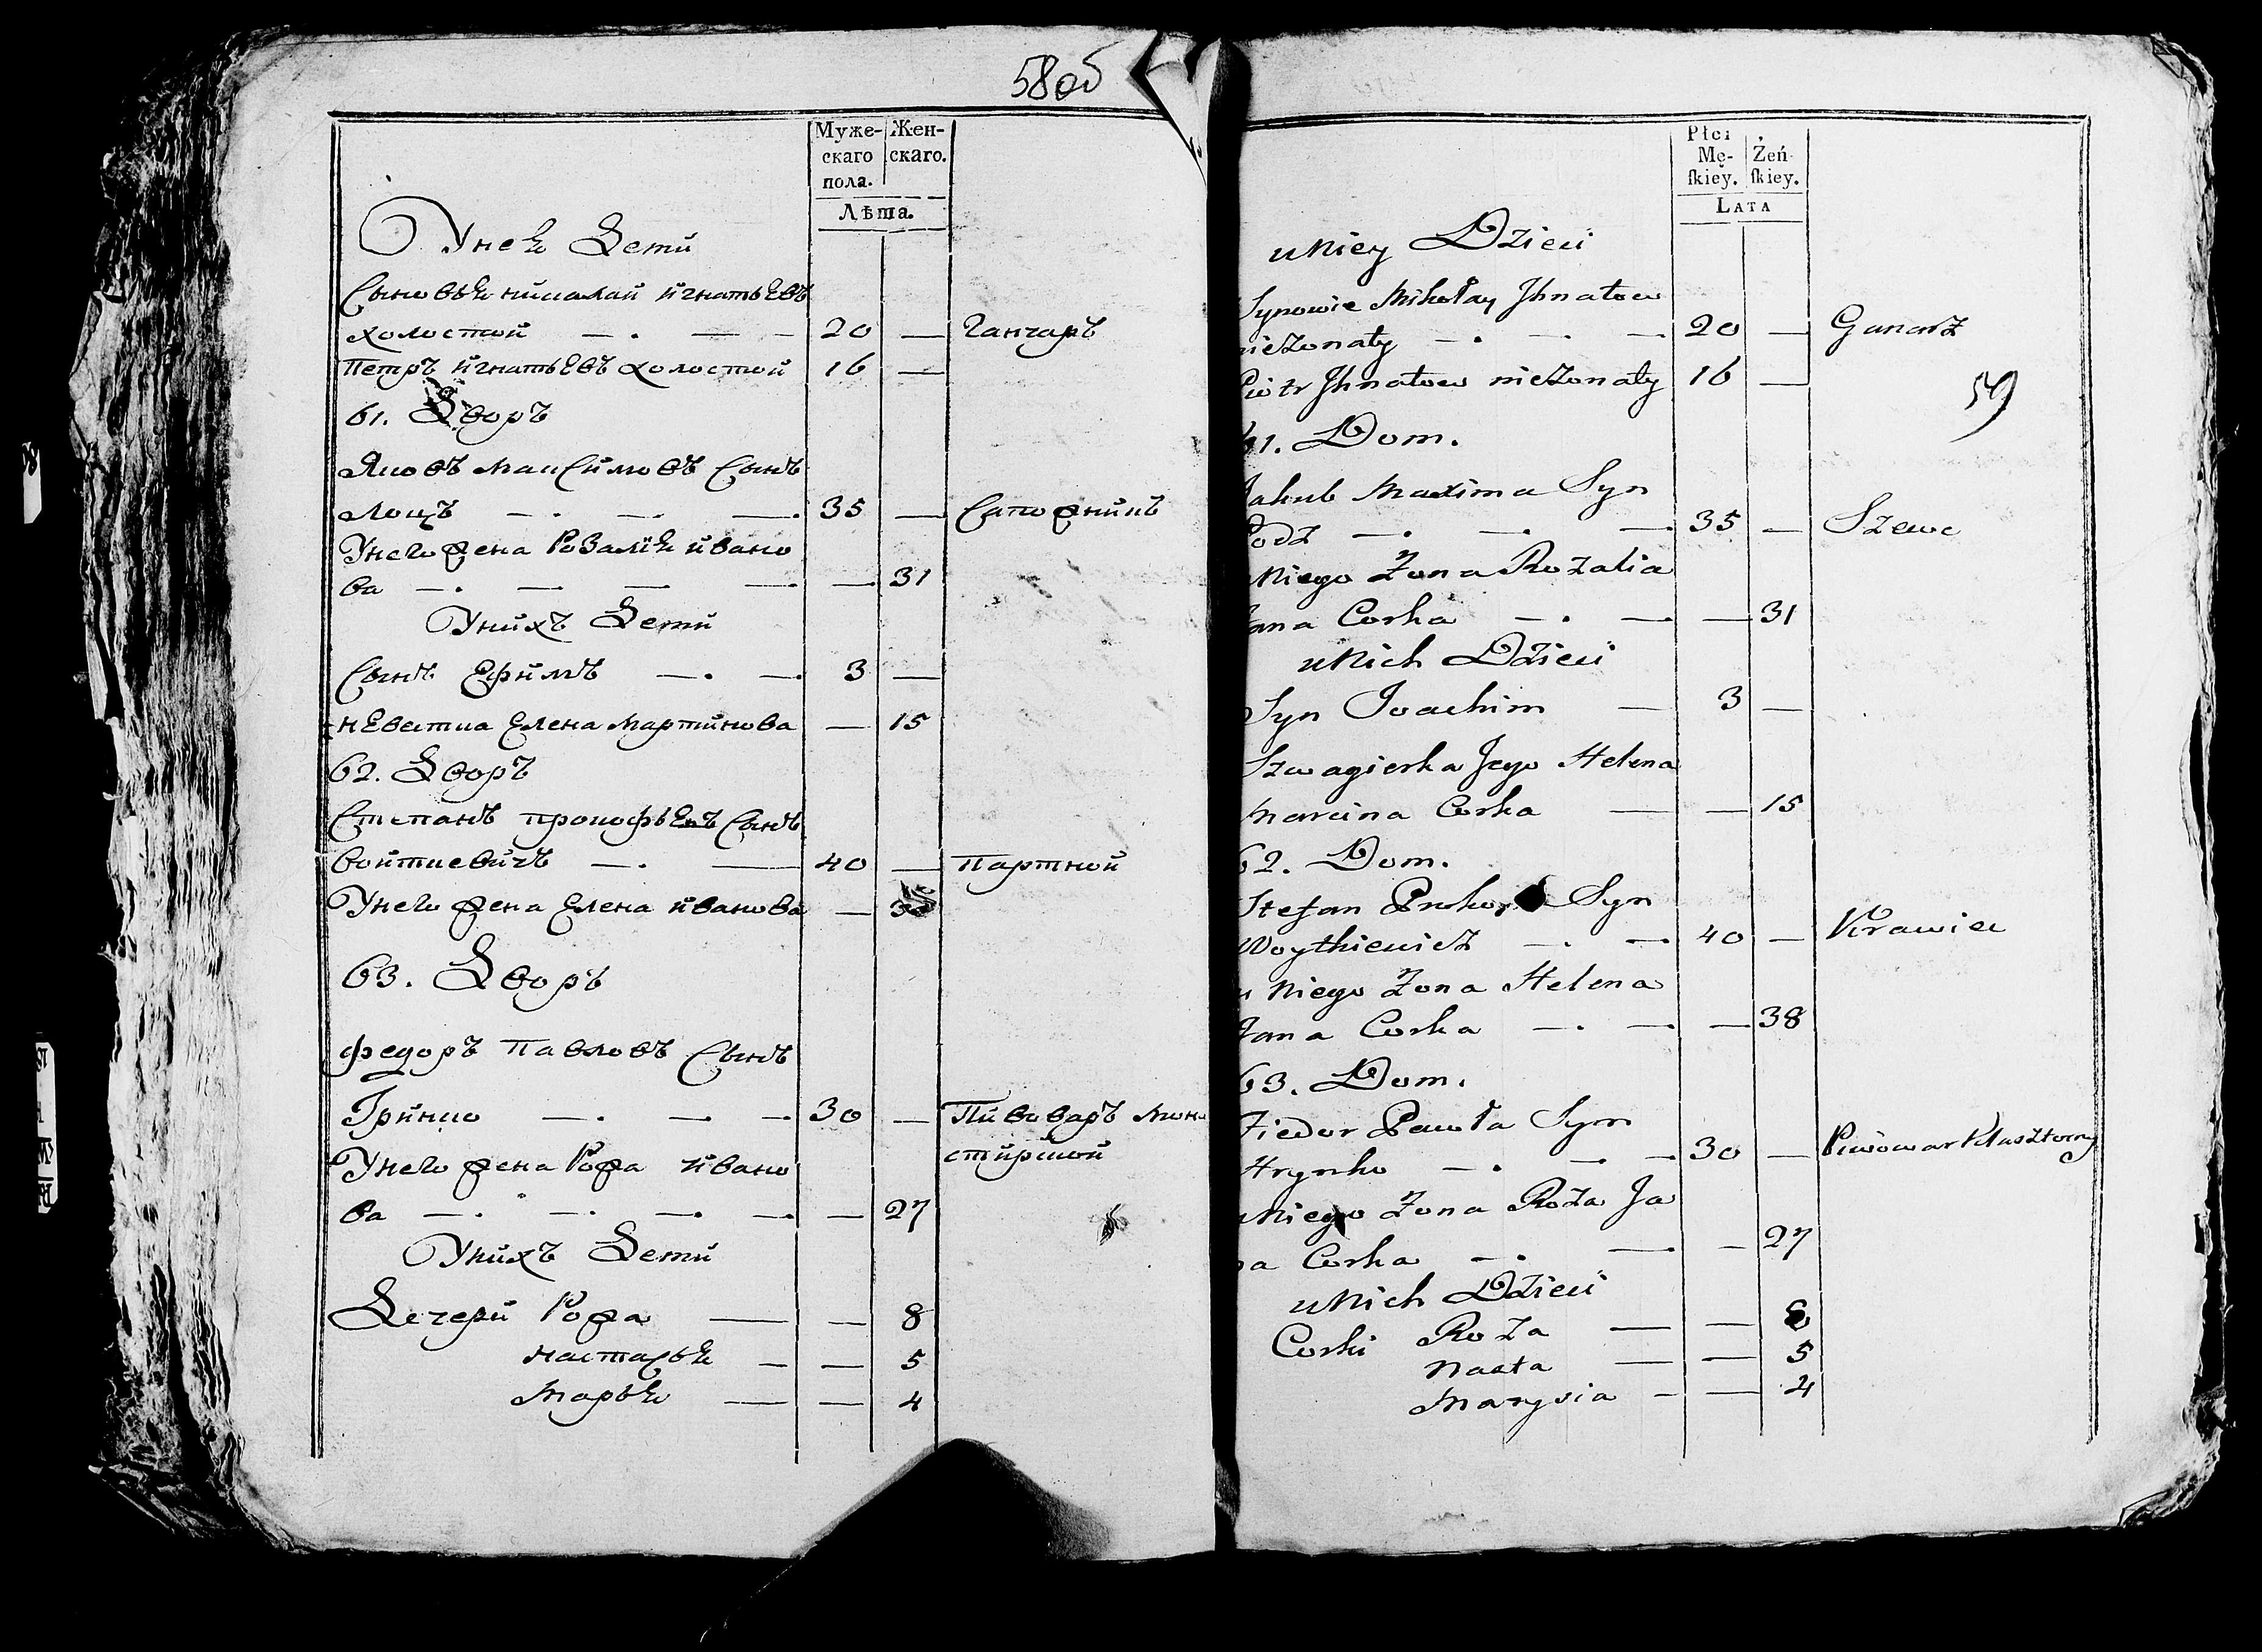 58об
Муже- Жен-
скаго скаго.
пола.
Лѣта.
Унеѣ Дети
Сыновьѣ николай игнатьевъ
холостой — . — — 20 — ганчаръ
Петръ игнатьевъ холостой 16 —
61. Дворъ
Яковъ максимовъ Сынъ
— . — — 35 — Сапожникъ
Унего жена Розалиѣ ивано
ва — . — — — — 31
Унихъ Дети
Сынъ Ефимъ — . — 3 —
невестка Елена мартинова — 15
62. Дворъ
Степанъ прокофьевъ Сынъ
войткевичъ — . — 40 — партной
Унего жена Елена иванова —
63. Дворъ
федоръ павловъ Сынъ
Гринко — . — — 30 — Пивоваръ мона
стирской
Унего жена Рожа ивано
ва — . — . — . — — 27
Унихъ Дети
Дочери Рожа — — 8
настасьѣ — — 5
Марьѣ — — 4
Płci
Mę- Żeń-
ſkiey. ſkiey.
LATA
u Niey Dzieci
Synowie Mikołay Jhnatow
nieżonaty — . — — 20 — Gancarz
Piotr Jhnatow nieżonaty 16 —
59
61. Dom.
Jakub Maxima Syn
— . — . — 35 — Szewc
u Niego Żona Rozalia
Jana Corka — . — — 31
u Nich Dzieci
Syn Joachim — 3 —
Szwagierka Jego Helena
Marcina Corka — — 15
62. Dom.
Stefan Syn
Woytkiewicz — . — 40 — Krawiec
u Niego Żona Helena
Jana Corka — . — — 38
63. Dom.
Fiedor Pawła Syn
Hrynko — . — — 30 — Piwowar Klasztorny
u Niego Żona Roża Ja
na Corka — . — — 27
u Nich Dzieci
Corki Roża — — 8
Nasta — — 5
Marysia — — 4